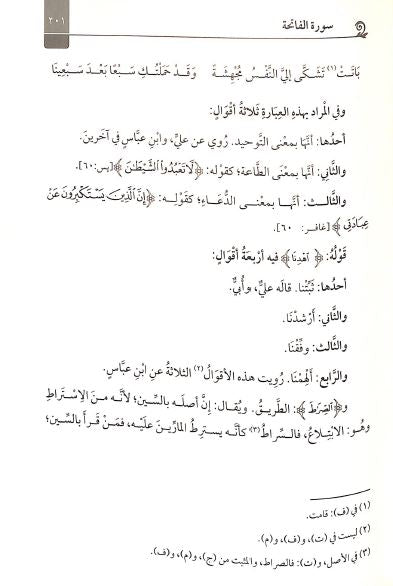 سورة الفاتحة
٢٠١
بَاتَتْ (١) تَشَكَّى إليَّ النَّفْسُ مُجْهِشَةً وَقَدْ حَمَلْتُكِ سَبْعًا بَعْدَ سَبْعِينَا
وفي المراد بهذهِ العِبارةِ ثلاثةُ أقوالٍ:
أحدُها: أنَّها بمعْنى التَّوحيد. رُوي عن عليٍّ، وابنِ عبَّاسٍ في آخرينَ.
والثَّاني: أنَّها بمعْنَى الطَّاعة؛ كقولِه: ﴿لَا تَعْبُدُوا الشَّيْطَانَ﴾ [يس: ٦٠].
والثَّالث: أنَّها بمعنى الدُّعاءِ؛ كقولِه: ﴿إِنَّ الَّذِينَ يَسْتَكْبِرُونَ عَنْ
عِبَادَتِي﴾ [غافر: ٦٠].
قَوْلُهُ: ﴿اهْدِنَا﴾ فيه أربعةُ أقوالٍ:
أحدُها: ثَبِّتْنا. قالَه عليٌّ، وأُبيٌّ.
والثَّاني: أَرْشِدْنَا.
والثَّالث: وفِّقْنَا.
والرَّابع: أَلْهِمْنَا. رُويت هذه الأقوالُ (٢) الثلاثةُ عن ابْنِ عبَّاسٍ.
و﴿الصِّرَاطَ﴾: الطَّريقُ. ويُقال: إنَّ أصلَه بالسِّين؛ لأنَّه منَ الِاسْتراطِ
وهُو: الابْتِلاعُ، فالسِّراطُ (٣) كأنَّه يسترِطُ المارِّينَ عليْه، فمَنْ قرأَ بالسِّين؛
(١) في (ف): قامت.
(٢) ليست في (ت)، و(ف)، و(م).
(٣) في الأصل، و(ت): فالصراط، والمثبت من (ج)، و(م)، و(ف).